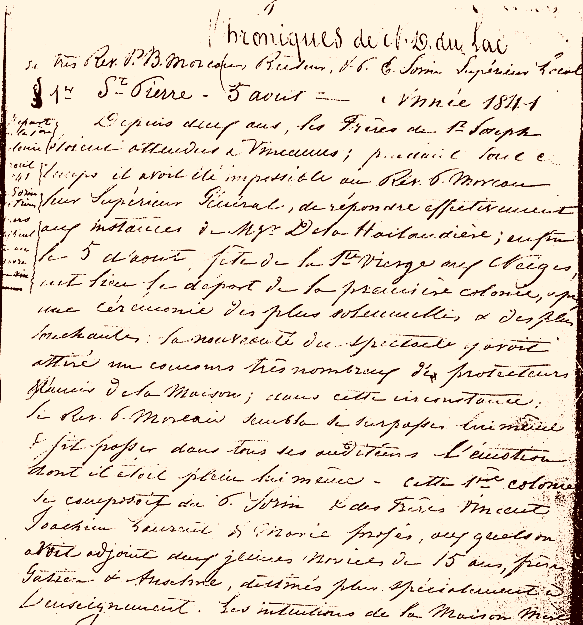 Chroniques de N. D. du Lac
le très Rev. P. B. Moreau Recteur, & P. E. Sorin Supérieur local
§ 1er St Pierre - 5 août - Année 1841
Depuis deux ans, les Frères de St Joseph
étoient attendus à Vincennes; pendant tout ce
temps il avoit été impossible au Rév. P. Moreau
leur Supérieur Général, de répondre effectivement
aux instances de Mgr De la Hailandière; enfin
le 5 d'août, fête de la Ste Vierge aux Neiges,
eut lieu le départ de la première colonie, après
une cérémonie des plus solennelles & des plus
touchantes: la nouveauté du spectacle y avoit
attiré un concours très nombreux de protecteurs
& d'amis de la Maison; dans cette circonstance,
le Rev. P. Moreau sembla se surpasser lui même
& fit passer dans tous ses auditeurs l'émotion
dont il étoit plein lui même - cette 1ère colonie
se composoit du P. Sorin & des Frères Vincent
Joachim Laurent & Marie profès, auxquels on
avoit adjoint deux jeunes novices de 15 ans, frères
Gatien & Anselme, destinés plus spécialement à
l'enseignement. Les intentions de la Maison Mère